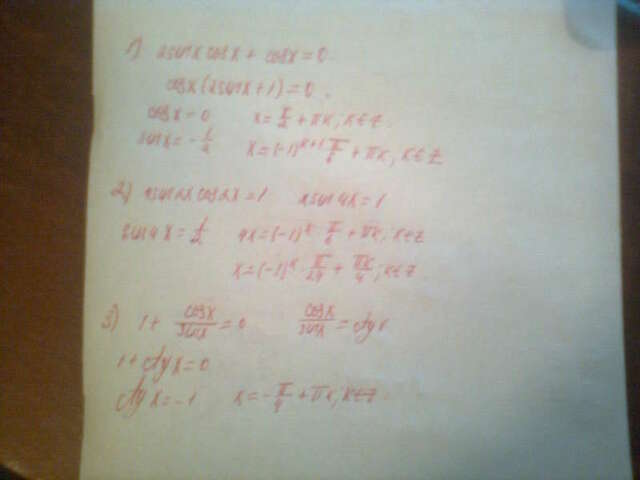 1) 2sinx cosx + cosx = 0
cosx(2sinx+1)=0
cosx=0 x=π/2+πk, k∈Z
sinx=-1/2 x=(-1)^(k+1) π/6+πk, k∈Z
2) 4sin2x cos2x=1 2sin4x=1
sin4x=1/2 4x=(-1)^k π/6+πk, k∈Z
x=(-1)^k π/24+πk/4, k∈Z
3) 1+ cosx/sinx=0 cosx/sinx=ctgx
1+ctgx=0
ctgx=-1 x=-π/4+πk, k∈Z